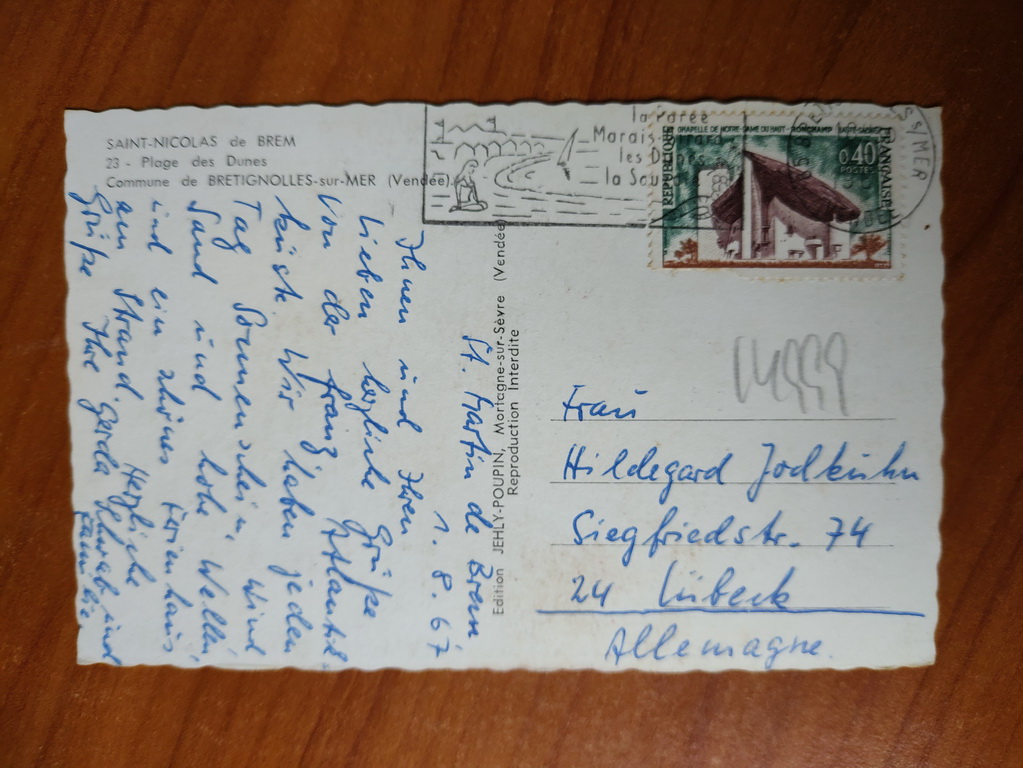 SAINT-NICOLAS de BREM
23 - Plage des Dunes
Commune de BRETIGNOLLES-sur-MER (Vendée)
St. Martin de Brem
1. 8. 67
Ihnen und Ihren
Lieben herzliche Grüße
von der franz. Atlantik-
küste. Wir haben jeden
Tag Sonnenschein, Wind
Sand und hohe Wellen
und ein schönes Ferienhaus
am Strand. Herzliche
Grüße Ihre Gerda und
Familie
Edition JEHLY-POUPIN, Mortagne-sur-Sèvre (Vendée)
Reproduction Interdite
la Parée
Marais
les D
la Sou
S/MER
CHAPELLE DE NOTRE-DAME DU HAUT - RONCHAMP HAUTE-SAÔNE
REPUBLIQUE
FRANÇAISE
0,40
POSTES
Frau
Hildegard Jodkuhn
Siegfriedstr. 74
24 Lübeck
Allemagne.